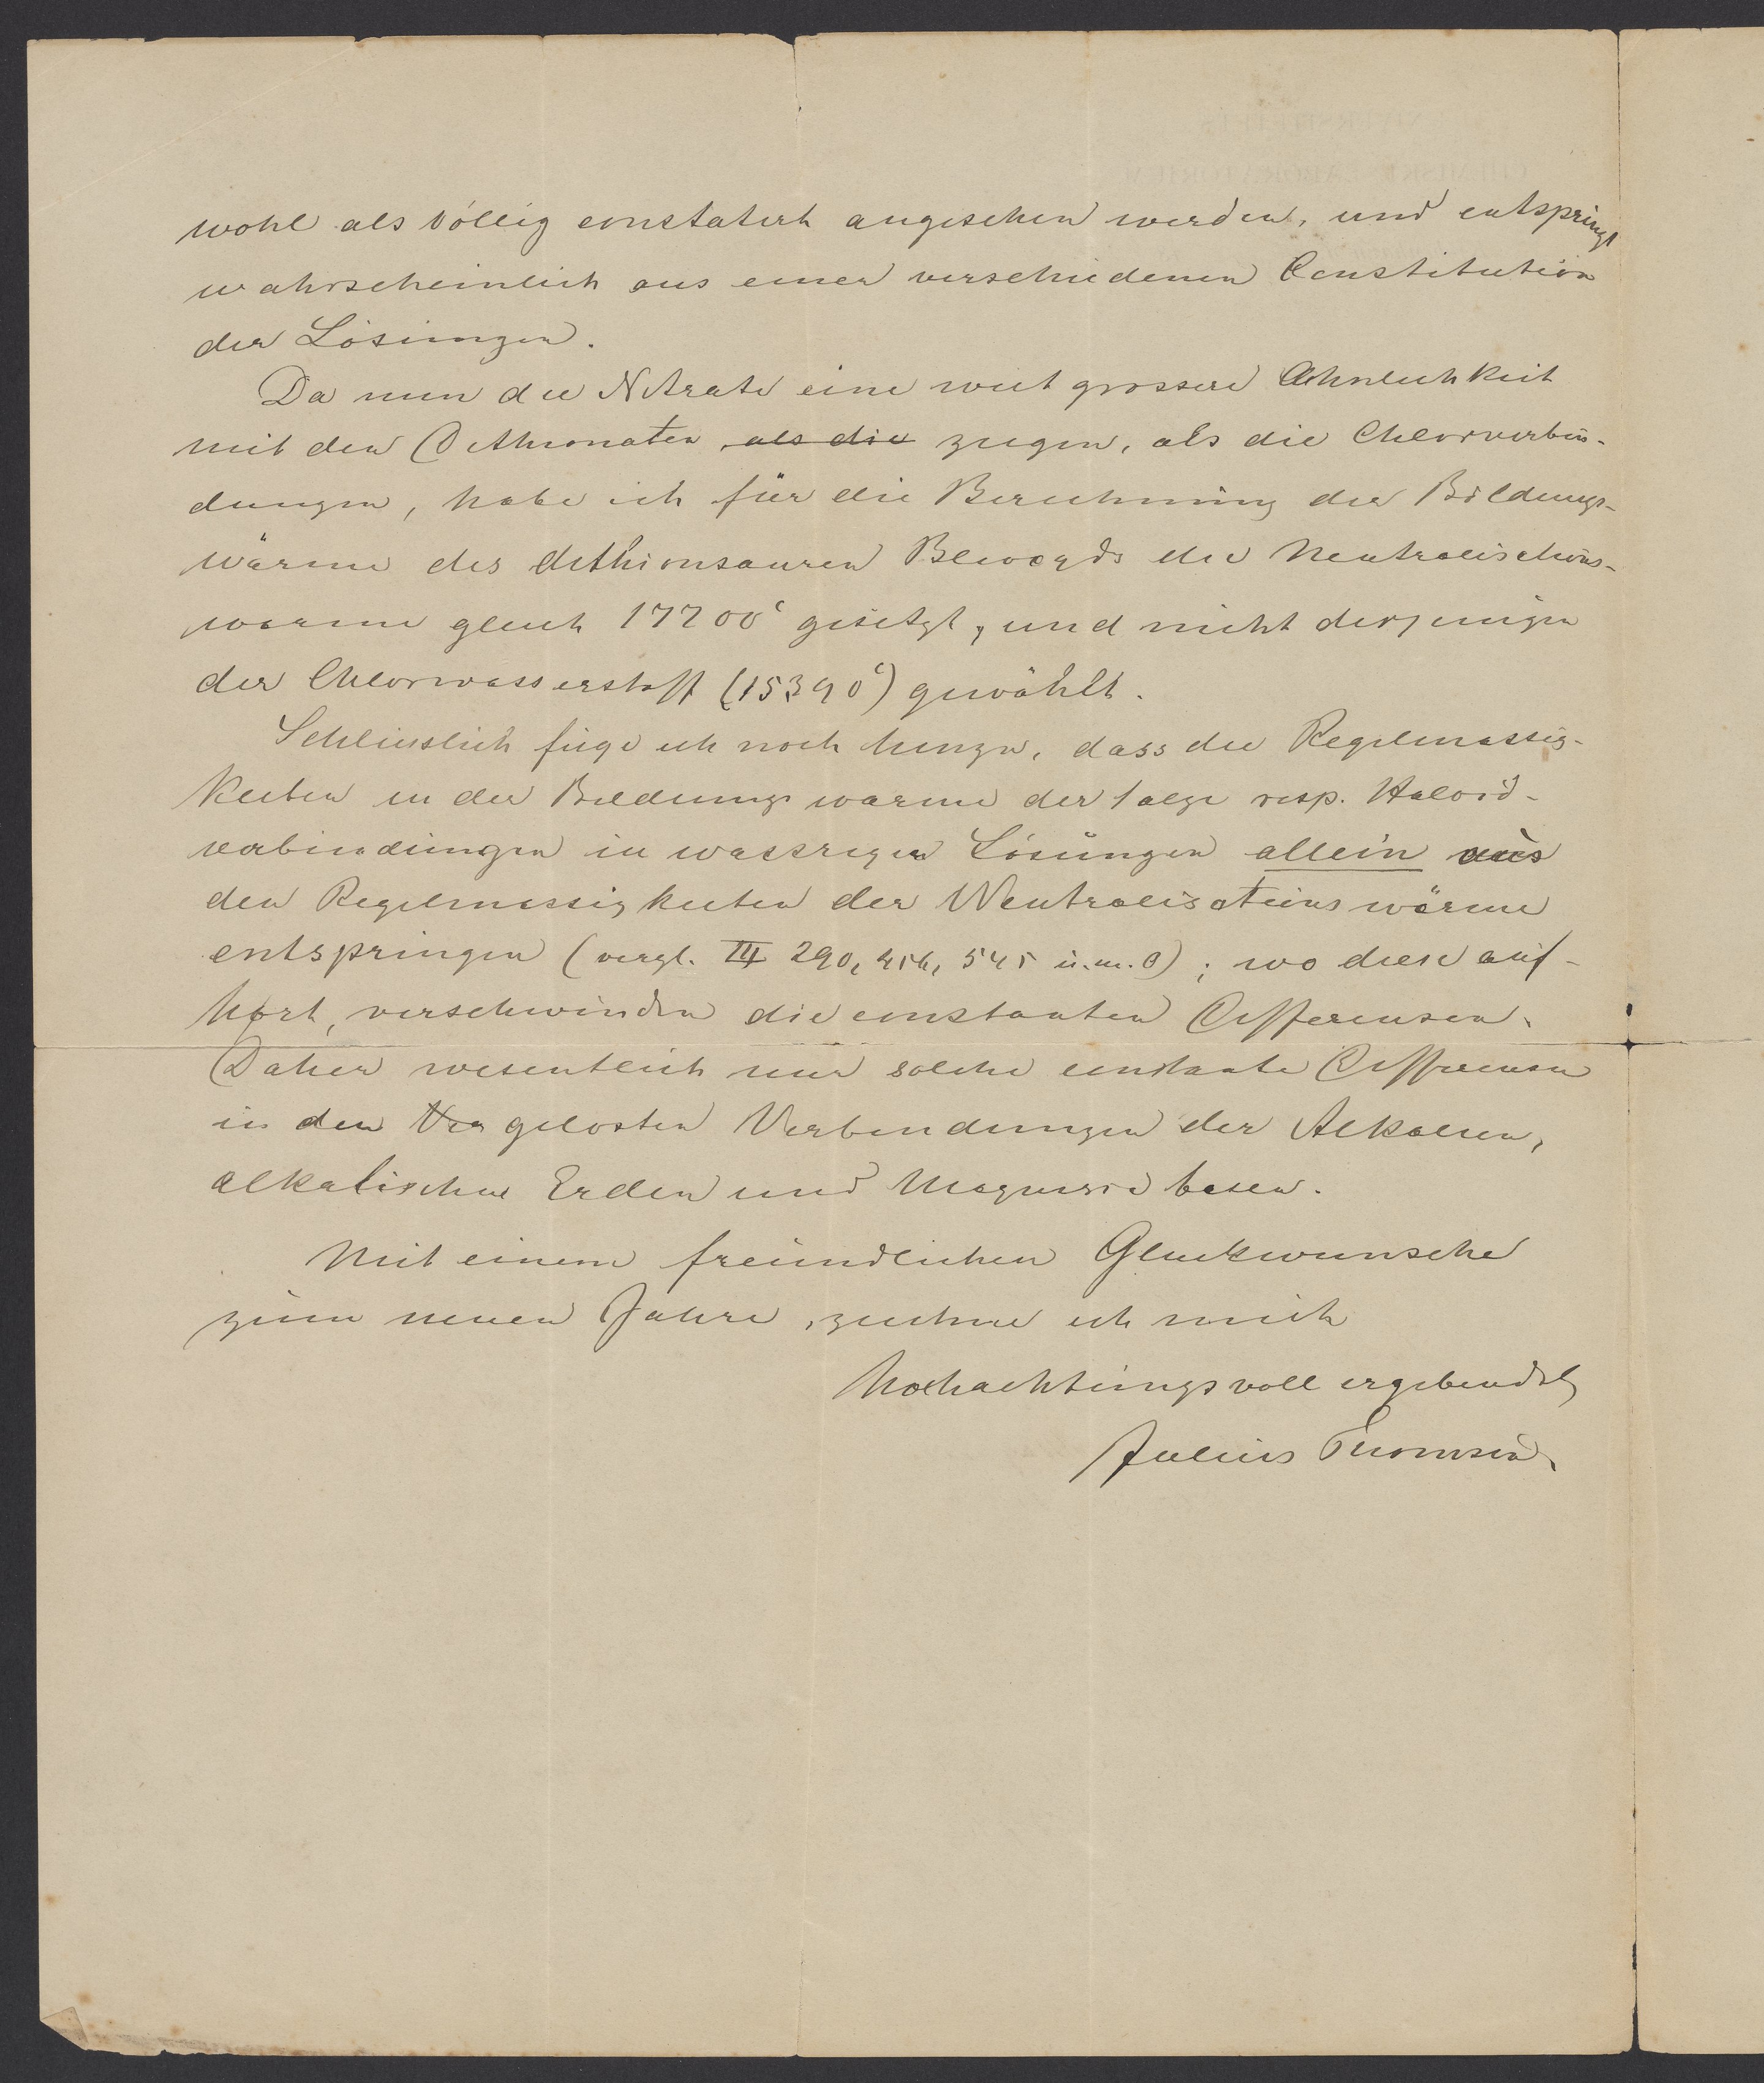 wohl als völlig constatirt angesehen werden, und entspringt
wahrscheinlich aus einer verschiedenen Constitution
der Lösungen.
Da nun die Nitrate eine weit grossere Ahnlichkeit
mit den Dithionaten als die zeigen, als die Chlorverbin-
dungen, habe ich für die Berechnung der Bildungs-
wärme des dithionsauren Bleioxyds die Neutralisations-
warme gleich 17700c gesetzt, und nicht derjenigen
der Chlorwasserstoff (15390c) gewählt.
Schliesslich füge ich noch hinzu, dass die Regelmassig-
keiten in der Bildungswarme der Salze resp. Haloid-
verbindungen in wassrigen Lösungen allein aus
den Regelmassigkeiten der Neutralisationswärme
entspringen (vergl. III 290, 456, 545 u.m.O); wo diese auf-
hört, verschwinden die constanten Differensen.
Daher wesentlich nur solche constante Differensen
in den gelosten Verbindungen der Alkalien,
alkalischen Erden und Magnesiabasen.
Mit einem freundlichen Gluckwunsche
zum neuen Jahre, zeichne ich mich
hochachtungsvoll ergebendst
Julius Thomsen